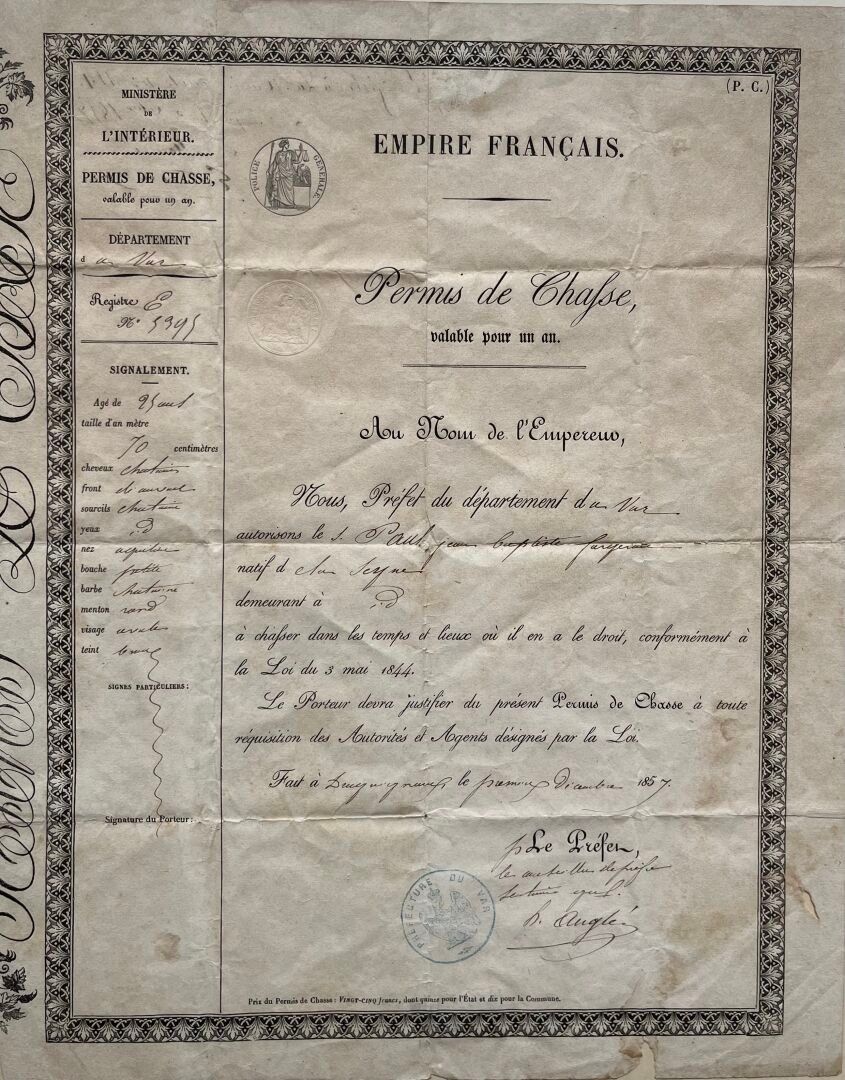 MINISTÈRE
DE
L'INTÉRIEUR.
PERMIS DE CHASSE,
valable pour un an.
DÉPARTEMENT
d u Var
Registre E
N° 5395
SIGNALEMENT.
Agé de 25 ans
taille d'un mètre
70 centimètres
cheveux chatains
front
sourcils chatains
yeux id
nez aquilin
bouche petite
barbe chataine
menton rond
visage ovale
teint brun
SIGNES PARTICULIERS:
Signature du Porteur:
(P. C.)
EMPIRE FRANÇAIS.
POLICE GÉNÉRALE
Permis de Chasse,
valable pour un an.
Au Nom de l'Empereur,
Nous, Préfet du département du Var
autorisons le S. Paul, jean baptiste
natif de la Seyne
demeurant à id
à chasser dans les temps et lieux où il en a le droit, conformément à
la Loi du 3 mai 1844.
Le Porteur devra justifier du présent Permis de Chasse à toute
réquisition des Autorités et Agents désignés par la Loi.
Fait à Draguignan, le premier décembre 1857
p Le Préfet,
le conseiller de préfre
PRÉFECTURE DU VAR
Prix du Permis de Chasse: VINGT-CINQ francs, dont quinze pour l'État et dix pour la Commune.